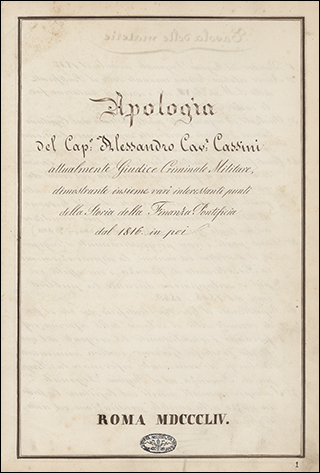 Apologia
del Cap.º Alessandro Cav.º Cassini
attualmente Giudice Criminale Militare,
dimostrante insieme vari interessanti punti
della Storia della Finanza Pontificia
dal 1816 in poi
ROMA MDCCCLIV.
1